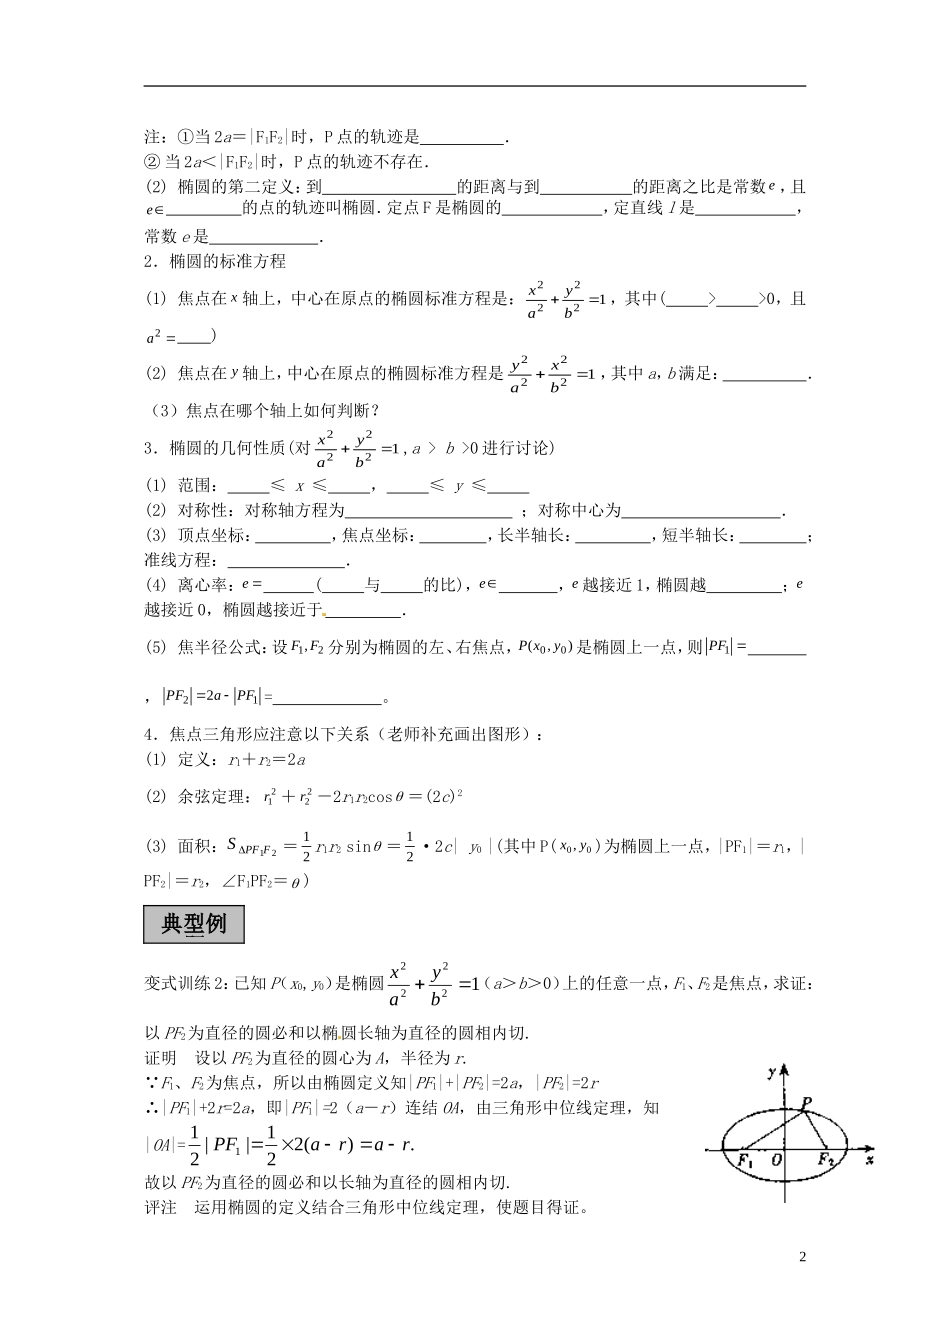 注：①当 2a＝|F₁F₂|时，P 点的轨迹是__________．
② 当 2a＜|F₁F₂|时，P 点的轨迹不存在．
(2) 椭圆的第二定义：到________________的距离与到___________的距离之比是常数 e ，且
e∈_________的点的轨迹叫椭圆．定点 F 是椭圆的____________，定直线 l 是____________，
常数 e 是_____________．
2．椭圆的标准方程
(1) 焦点在 x 轴上，中心在原点的椭圆标准方程是：x²/a² + y²/b² =1 ，其中(_____>_____>0，且
a² =____)
(2) 焦点在 y 轴上，中心在原点的椭圆标准方程是 y²/a² + x²/b² =1 ，其中 a，b 满足：__________．
（3）焦点在哪个轴上如何判断？
3．椭圆的几何性质(对 x²/a² + y²/b² =1 , a > b >0 进行讨论)
(1) 范围：_____≤ x ≤_____，_____≤ y ≤_____
(2) 对称性：对称轴方程为____________________；对称中心为___________________．
(3) 顶点坐标：_________，焦点坐标：________，长半轴长：_________，短半轴长：________；
准线方程：______________．
(4) 离心率：e =______(_____与_____的比)，e∈_______，e 越接近 1，椭圆越_________；e
越接近 0，椭圆越接近于_________．
(5) 焦半径公式：设 F₁, F₂ 分别为椭圆的左、右焦点，P(x₀, y₀) 是椭圆上一点，则|PF₁| =_______
，|PF₂| =2a - |PF₁| =_____________。
4．焦点三角形应注意以下关系（老师补充画出图形）：
(1) 定义：r₁＋r₂＝2a
(2) 余弦定理：r₁² ＋ r₂² －2r₁r₂cosθ＝(2c)²
(3) 面积：S ΔPF₁F₂ ＝1/2 r₁r₂ sinθ＝1/2·2c| y₀ |(其中 P( x₀, y₀ )为椭圆上一点，|PF₁|＝r₁，|
PF₂|＝r₂，∠F₁PF₂＝θ)
典型例
变式训练 2：已知 P（x₀, y₀）是椭圆 x²/a² + y²/b² =1（a＞b＞0）上的任意一点，F₁、F₂是焦点，求证：
以 PF₂为直径的圆必和以椭圆长轴为直径的圆相内切.
证明　设以 PF₂为直径的圆心为 A，半径为 r.
∵F₁、F₂为焦点，所以由椭圆定义知|PF₁|+|PF₂|=2a，|PF₂|=2r
∴|PF₁|+2r=2a，即|PF₁|=2（a－r）连结 OA，由三角形中位线定理，知
|OA|=1/2 | PF₁ |=1/2 ×2(a - r) =a - r.
y
P
F₁ O F₂ x
故以 PF₂为直径的圆必和以长轴为直径的圆相内切.
评注　运用椭圆的定义结合三角形中位线定理，使题目得证。
2